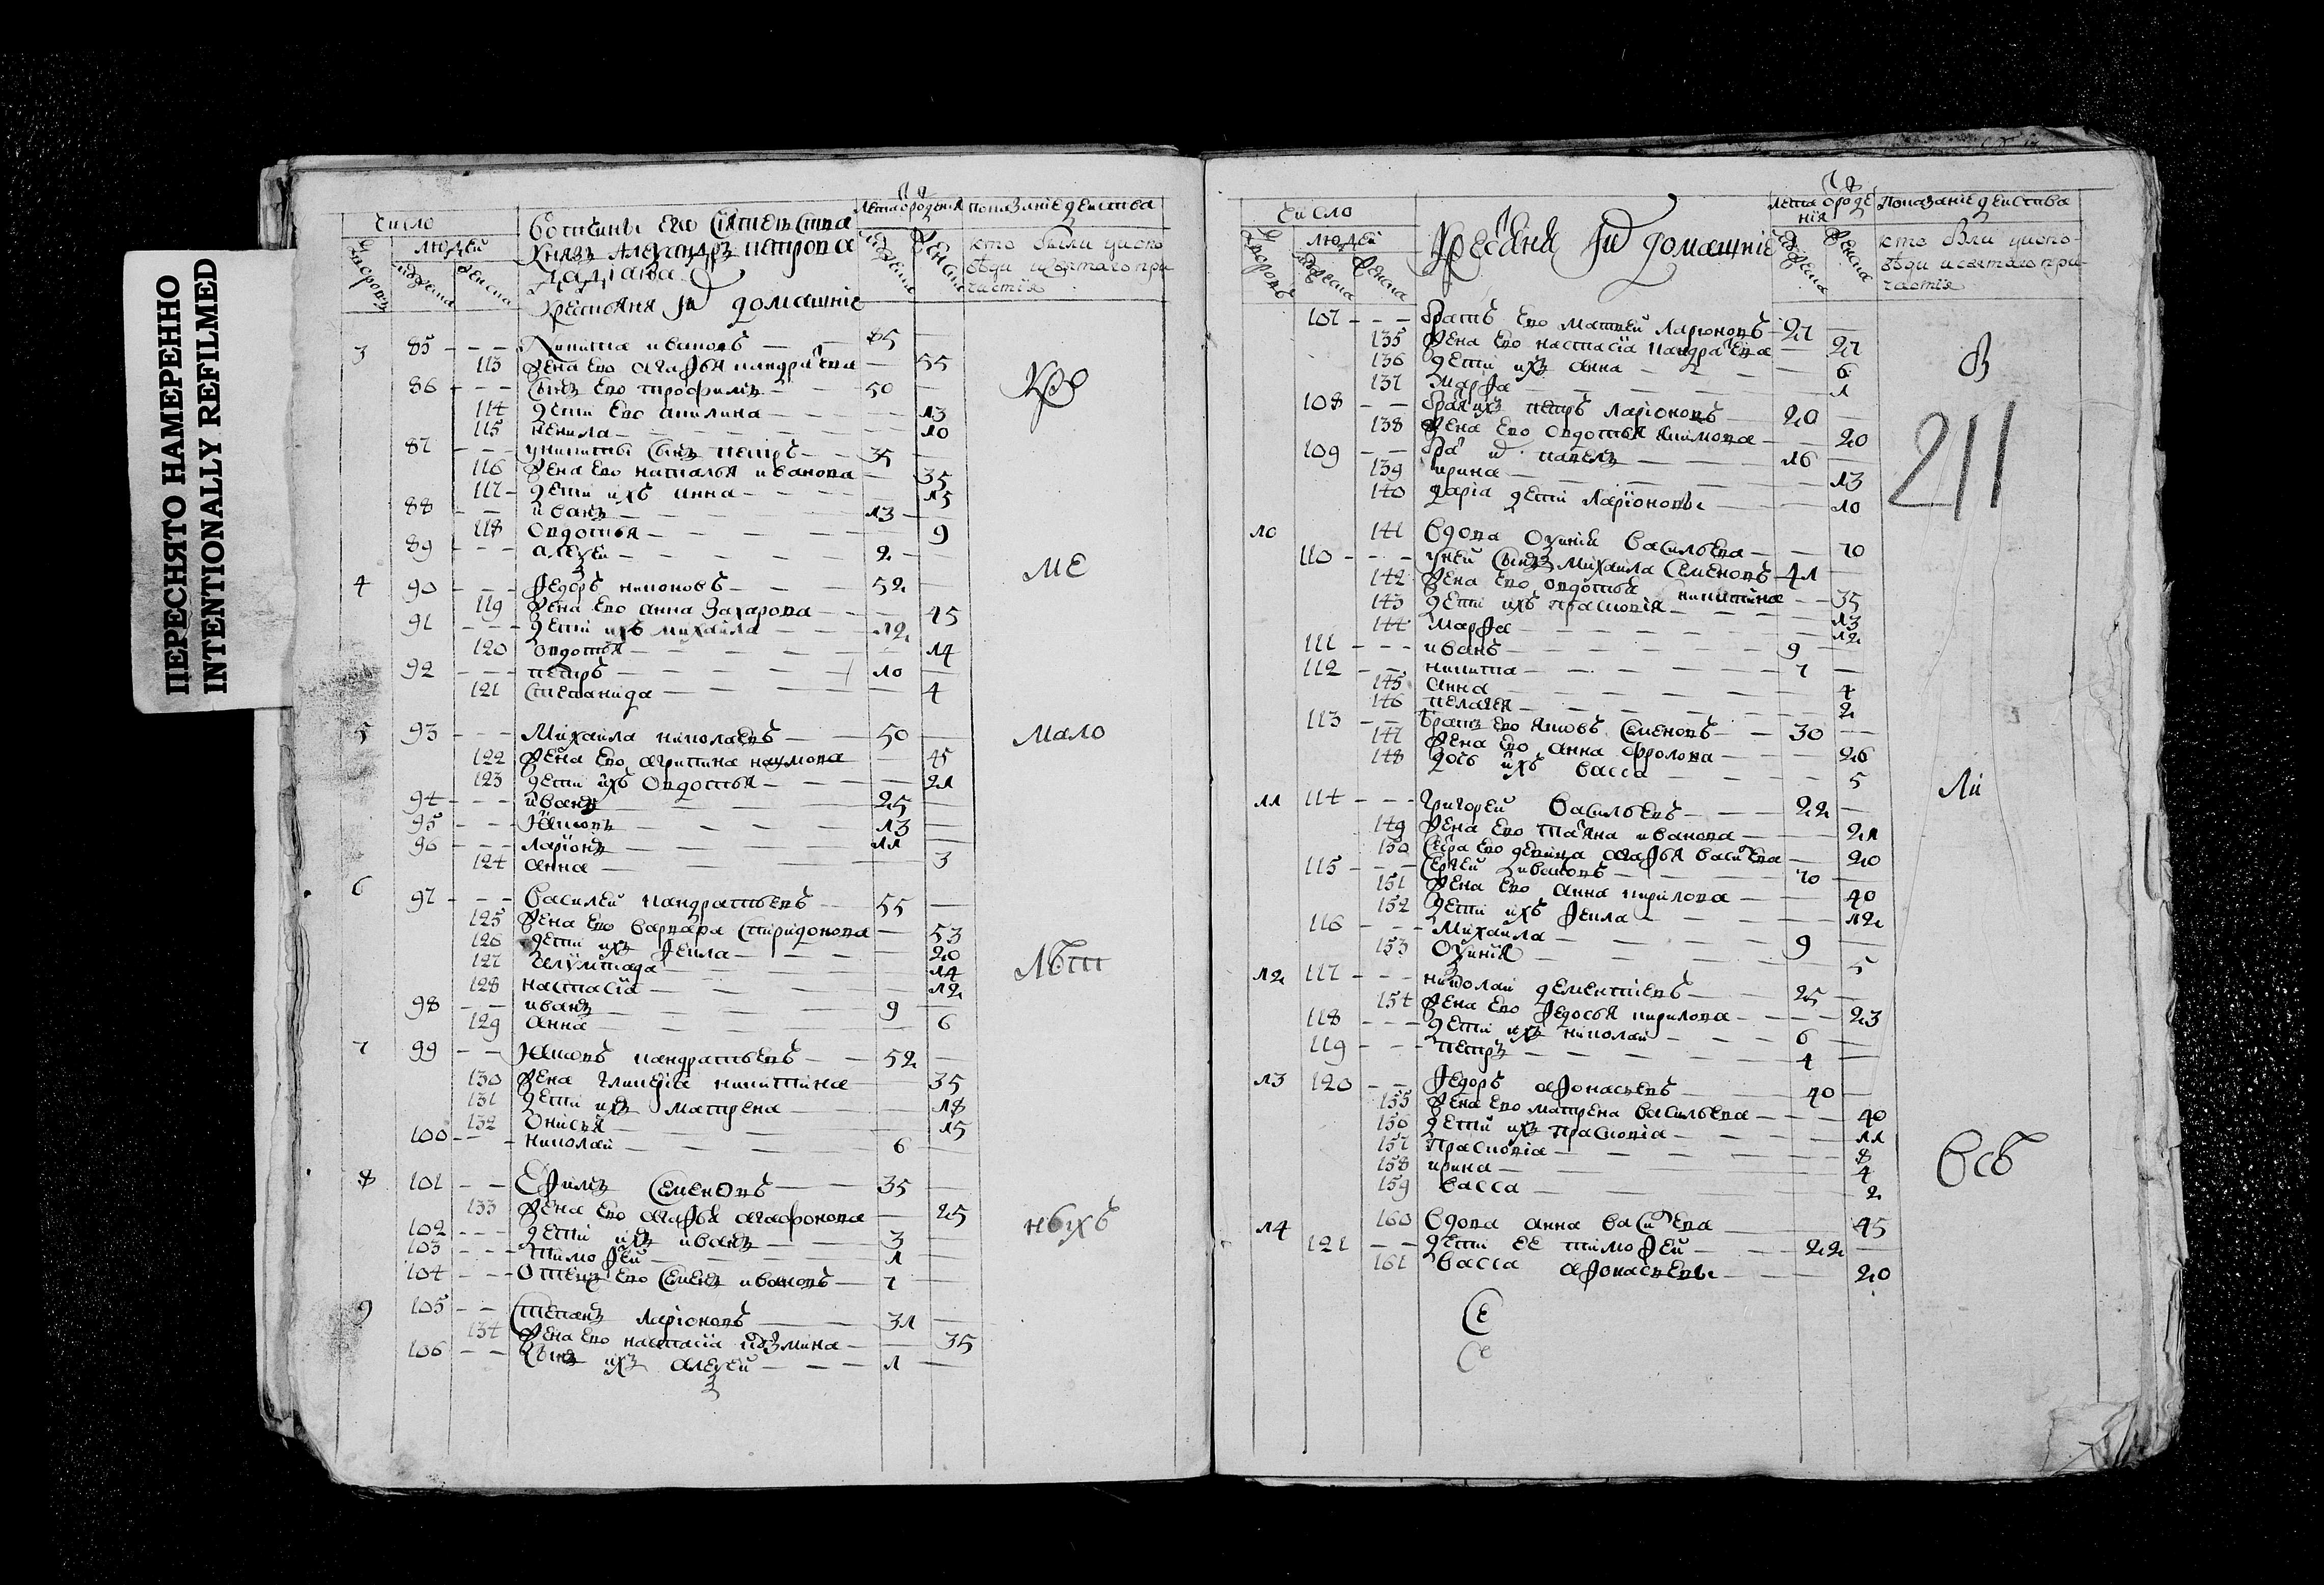 ПЕРЕСНЯТО НАМЕРЕННО
INTENTIONALLY REFILMED
число
людеи
вотчины его сіятелства
князь Александръ петрова
крестьяня и домашніе
лета о рождения
показание деиства
кто были у испо
веди и святаго при
частия
3 85 - - - Никита ивановъ — 85 —
113 жена его агафья кандратева — 55
86 - - - сынъ его трофимъ — 50 —
114 дети его акилина — 13
115 ненила — 10
87 - - - у никиты сынъ петръ — 35 —
116 жена его наталья иванова — 35
117 - дети ихъ анна — 15
88 - - иванъ — 13 —
118 овдотья — 9
89 - - - алеѯеи — 2 —
4 90 - - - Ѳедоръ никоновъ — 52 —
119 жена его анна захарова — 45
91 - - - дети ихъ михаила — 12
120 овдотья — 14
92 - - - петръ — 10 —
121 степанида — 4
5 93 - - - Михаила николаевъ — 50 —
122 жена его агрипина наумова — 45
123 дети ихъ овдотья — 21
94 - - - иванъ — 25 —
95 - - - яковъ — 13 —
96 - - - ларіонъ — 11 —
124 анна — 3
6 97 - - - василеи кандратьевъ — 55 —
125 жена его варвара спиридонова — 53
126 дети ихъ Ѳекла — 20
127 — 14
128 настасіа — 12
98 - - - иванъ — 9
129 анна — 6
7 99 - - яковъ кандратьевъ — 52 —
130 жена гликеріа никитина — 35
131 дети ихъ матрена — 18
132 онисья — 15
100 - - - николаи — 6 —
8 101 - - Еѳимъ семеновъ — 35 —
133 жена его агаѳья агафонова — 25
102 - - - дети ихъ иванъ — 3 —
103 - - - тимоѳеи — 1
104 - - - отецъ его семенъ ивановъ — 7
9 105 - - степанъ ларіоновъ — 31 —
134 жена его настасіа козмина — 35
106 - - сынъ ихъ алеѯеи — 1 —
ме
мало
лѣт
ныхъ
число
людеи
Кресяня и домашніе
лета о роде
нія
показаніе деиства
кто были у испо-
веди и святаго при-
частія
107 - - - братъ его матвеи ларионовъ — 27 —
135 жена его настасіа кандратева — 27
136 дети ихъ анна — 6
137 марѳа — 1
108 - - братъ ихъ петръ ларіоновъ — 20 —
138 жена его овдотья якимова — 20
109 - - павелъ — 16 —
139 ирина — 13
140 даріа дети ларіоновы — 10
10 141 вдова оѯиніа васильева — 70
110 - - - у неи сынъ михаила семеновъ — 41 —
142 жена его овдотья никитина — 35
143 дети ихъ прасковія — 13
144 марѳа — 12
111 - - - иванъ — 9 —
112 - - - никита — 7 —
145 анна — 4
146 пелагея — 2
113 - - братъ его яковъ семеновъ — 30 —
147 жена его анна фролова — 26
148 дочь ихъ васса — 5
11 114 - - - григореи васильевъ — 22 —
149 жена его татяна иванова — 21
150 сестра его девица агаѳья василева — 20
115 - - - сергеи ивановъ — 70 —
151 жена его анна кирилова — 40
152 дети ихъ Ѳекла — 12
116 - - - михаила — 9 —
153 оѯинія — 5
12 117 - - - николаи дементьевъ — 25 —
154 жена его Ѳедосья кирилова — 23
118 - - - дети ихъ николаи — 6
119 - - - петръ — 4
13 120 - - Ѳедоръ аѳонасьевъ — 40 —
155 жена его матрена васильева — 40
156 дети ихъ прасковіа — 11
157 прасковіа — 8
158 ирина — 4
159 васса — 2
14 160 вдова анна василева — 45
121 - - дети ее тимоѳеи — 22 —
161 васса аѳонасьевы — 20
211
ли
всѣ